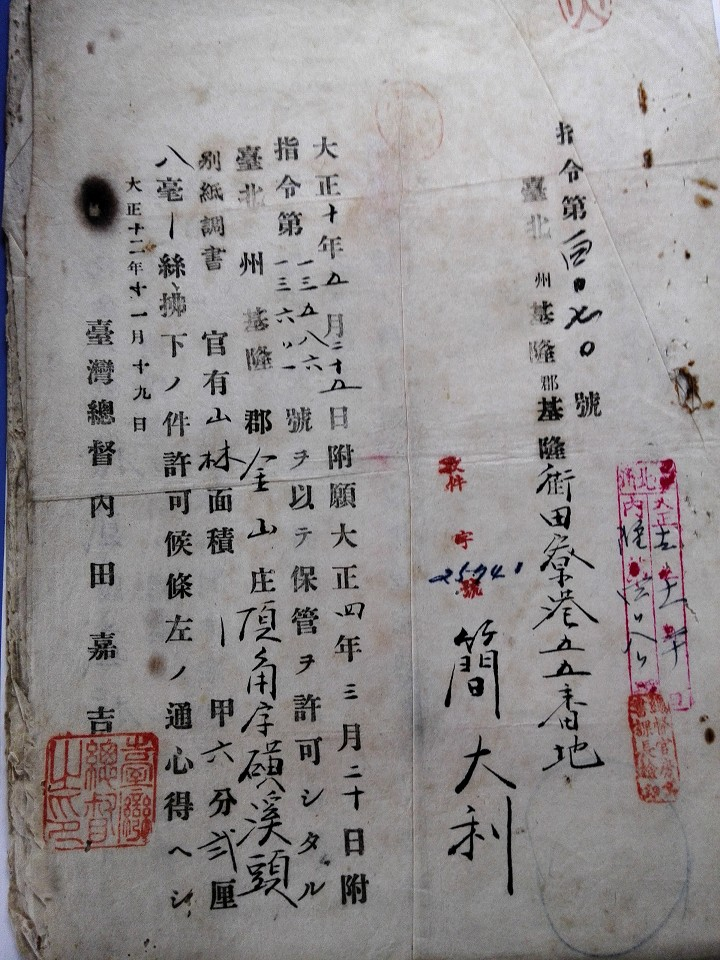 指令第百〇七〇號
臺北州基隆郡基隆街田寮港五五番地
簡大利
件字 25741 號
大正十年五月二十五日附願大正四年三月二十日附
指令第一三五八六號ヲ以テ保管ヲ許可シタル
臺北州基隆郡金山庄頂角字磺溪頭
別紙調書官有山林面積一甲六分弐厘
八毫一絲拂下ノ件許可候條左ノ通心得ヘシ
大正十二年十一月十九日
臺灣總督內田嘉吉
臺灣總督之印